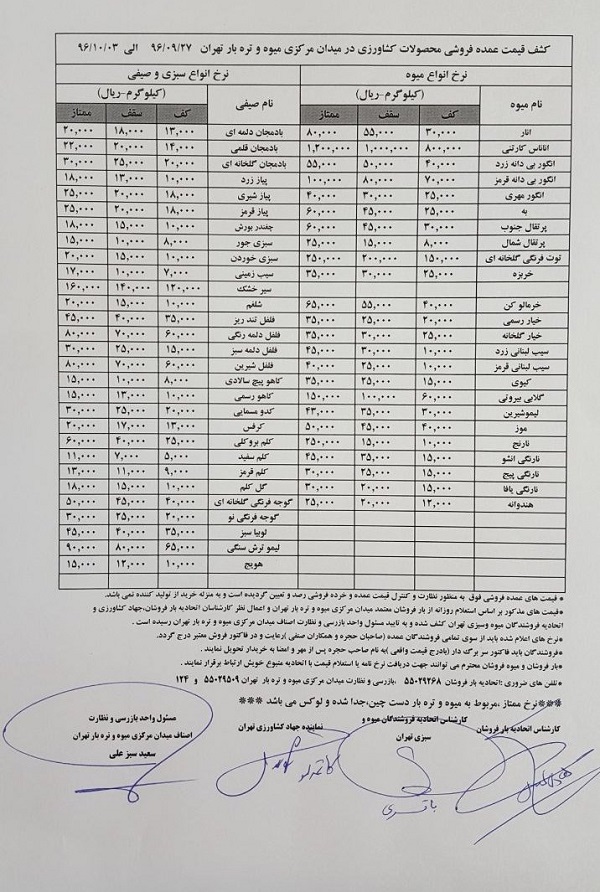 کشف قیمت عمده فروشی محصولات کشاورزی در میدان مرکزی میوه و تره بار تهران ۹۶/۰۹/۲۷ الی ۹۶/۱۰/۰۳
نرخ انواع میوه نرخ انواع سبزی و صیفی
نام میوه (کیلوگرم-ریال) نام صیفی (کیلوگرم-ریال)
کف سقف ممتاز کف سقف ممتاز
انار ۳۰,۰۰۰ ۵۵,۰۰۰ ۸۰,۰۰۰ بادمجان دلمه ای ۱۳,۰۰۰ ۱۸,۰۰۰ ۲۰,۰۰۰
اناناس کارتنی ۸۰۰,۰۰۰ ۱,۰۰۰,۰۰۰ ۱,۲۰۰,۰۰۰ بادمجان قلمی ۱۴,۰۰۰ ۲۰,۰۰۰ ۲۲,۰۰۰
انگور بی دانه زرد ۴۰,۰۰۰ ۵۰,۰۰۰ ۵۵,۰۰۰ بادمجان گلخانه ای ۲۰,۰۰۰ ۲۵,۰۰۰ ۳۰,۰۰۰
انگور بی دانه قرمز ۷۰,۰۰۰ ۸۰,۰۰۰ ۱۰۰,۰۰۰ پیاز زرد ۱۰,۰۰۰ ۱۳,۰۰۰ ۱۸,۰۰۰
انگور مهری ۲۵,۰۰۰ ۳۰,۰۰۰ ۴۰,۰۰۰ پیاز شیری ۱۸,۰۰۰ ۲۰,۰۰۰ ۲۵,۰۰۰
به ۲۵,۰۰۰ ۴۵,۰۰۰ ۶۰,۰۰۰ پیاز قرمز ۱۸,۰۰۰ ۲۰,۰۰۰ ۲۵,۰۰۰
پرتقال جنوب ۳۰,۰۰۰ ۴۵,۰۰۰ ۶۰,۰۰۰ چغندر بورش ۱۰,۰۰۰ ۱۵,۰۰۰ ۱۸,۰۰۰
پرتقال شمال ۸,۰۰۰ ۱۵,۰۰۰ ۲۵,۰۰۰ سبزی جور ۸,۰۰۰ ۱۰,۰۰۰ ۱۵,۰۰۰
توت فرنگی گلخانه ای ۱۵۰,۰۰۰ ۲۰۰,۰۰۰ ۲۵۰,۰۰۰ سبزی خوردن ۱۰,۰۰۰ ۱۵,۰۰۰ ۲۰,۰۰۰
خربزه ۲۵,۰۰۰ ۳۰,۰۰۰ ۳۵,۰۰۰ سیب زمینی ۷,۰۰۰ ۱۰,۰۰۰ ۱۷,۰۰۰
سیر خشک ۱۲۰,۰۰۰ ۱۴۰,۰۰۰ ۱۶۰,۰۰۰
خرمالو کن ۴۰,۰۰۰ ۵۵,۰۰۰ ۶۵,۰۰۰ شلغم ۱۰,۰۰۰ ۱۵,۰۰۰ ۲۰,۰۰۰
خیار رسمی ۲۰,۰۰۰ ۲۵,۰۰۰ ۳۵,۰۰۰ فلفل تند ریز ۳۵,۰۰۰ ۴۰,۰۰۰ ۴۵,۰۰۰
خیار گلخانه ۲۵,۰۰۰ ۳۰,۰۰۰ ۳۵,۰۰۰ فلفل دلمه رنگی ۶۰,۰۰۰ ۷۰,۰۰۰ ۸۰,۰۰۰
سیب لبنانی زرد ۱۰,۰۰۰ ۳۰,۰۰۰ ۴۵,۰۰۰ فلفل دلمه سبز ۱۵,۰۰۰ ۲۵,۰۰۰ ۳۰,۰۰۰
سیب لبنانی قرمز ۱۰,۰۰۰ ۲۵,۰۰۰ ۴۰,۰۰۰ فلفل شیرین ۶۰,۰۰۰ ۷۰,۰۰۰ ۸۰,۰۰۰
کیوی ۱۵,۰۰۰ ۲۵,۰۰۰ ۳۵,۰۰۰ کاهو پیچ سالادی ۸,۰۰۰ ۱۰,۰۰۰ ۱۵,۰۰۰
گلابی بیروتی ۶۰,۰۰۰ ۱۰۰,۰۰۰ ۱۵۰,۰۰۰ کاهو رسمی ۱۰,۰۰۰ ۱۳,۰۰۰ ۱۵,۰۰۰
لیموشیرین ۳۰,۰۰۰ ۳۵,۰۰۰ ۴۳,۰۰۰ کدو مسمایی ۲۰,۰۰۰ ۲۵,۰۰۰ ۳۰,۰۰۰
موز ۴۰,۰۰۰ ۴۵,۰۰۰ ۵۰,۰۰۰ کرفس ۱۳,۰۰۰ ۱۷,۰۰۰ ۲۰,۰۰۰
نارنج ۱۰,۰۰۰ ۱۵,۰۰۰ ۲۵۰,۰۰۰ کلم بروکلی ۲۵,۰۰۰ ۴۰,۰۰۰ ۶۰,۰۰۰
نارنگی انشو ۱۵,۰۰۰ ۳۵,۰۰۰ ۴۵,۰۰۰ کلم سفید ۵,۰۰۰ ۷,۰۰۰ ۱۱,۰۰۰
نارنگی پیج ۱۵,۰۰۰ ۲۵,۰۰۰ ۳۰,۰۰۰ کلم قرمز ۹,۰۰۰ ۱۱,۰۰۰ ۱۳,۰۰۰
نارنگی یافا ۱۵,۰۰۰ ۲۰,۰۰۰ ۳۰,۰۰۰ گل کلم ۱۰,۰۰۰ ۱۵,۰۰۰ ۱۸,۰۰۰
هندوانه ۱۲,۰۰۰ ۲۰,۰۰۰ ۲۵,۰۰۰ گوجه فرنگی گلخانه ای ۴۰,۰۰۰ ۴۵,۰۰۰ ۵۰,۰۰۰
گوجه فرنگی نو ۲۰,۰۰۰ ۲۵,۰۰۰ ۳۰,۰۰۰
لوبیا سبز ۳۵,۰۰۰ ۴۰,۰۰۰ ۴۵,۰۰۰
لیمو ترش سنگی ۶۵,۰۰۰ ۸۰,۰۰۰ ۹۰,۰۰۰
هویج ۱۰,۰۰۰ ۱۲,۰۰۰ ۱۵,۰۰۰
*قیمت های عمده فروشی فوق به منظور نظارت و کنترل قیمت عمده و خرده فروشی رصد و تعیین گردیده است و به منزله خرید از تولید کننده نمی باشد.
*قیمت های مذکور بر اساس استعلام روزانه از بار فروشان معتمد میدان مرکزی میوه و تره بار تهران و اعمال نظر کارشناسان اتحادیه بار فروشان،جهاد کشاورزی و
اتحادیه فروشندگان میوه وسبزی تهران کشف شده و به تایید مسئول واحد بازرسی و نظارت اصناف میدان مرکزی میوه و تره بار تهران رسیده است .
*نرخ های اعلام شده باید از سوی تمامی فروشندگان عمده (صاحبان حجره و همکاران صنفی )رعایت و در فاکتور فروش معتبر درج گردد.
*فروشندگان باید فاکتور سر برگ دار (بادرج قیمت واقعی )به نام صاحب حجره پس از مهر و امضا به خریدار تحویل نمایند .
*بار فروشان و میوه فروشان محترم می توانند جهت دریافت نرخ نامه یا استعلام قیمت با اتحادیه متبوع خویش ارتباط برقرار نمایند .
*تلفن های ضروری :اتحادیه بار فروشان ۵۵۰۲۹۲۶۸ ،بازرسی و نظارت میدان مرکزی میوه و تره بار تهران ۵۵۰۲۹۵۰۹ و ۱۲۴
***نرخ ممتاز ،مربوط به میوه و تره بار دست چین،جدا شده و لوکس می باشد ***
کارشناس اتحادیه بار فروشان کارشناس اتحادیه فروشندگان میوه و نماینده جهاد کشاورزی تهران مسئول واحد بازرسی و نظارت
سبزی تهران اصناف میدان مرکزی میوه و تره بار تهران
سعید سبز علی
باقری